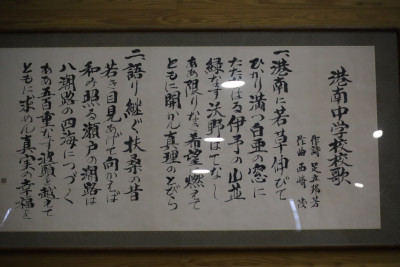 港南中学校校歌
作詞 足立稲芳
作曲 西崎 茂
一、港南に若草伸びて
ひかり満つ白亜の窓に
たたはる伊予の山並
緑なす沃野はてなし
ああ限りなき希望に燃えて
ともに開かん真理のとびら
二、語り継ぐ扶桑の昔
若き目見あげて向かえば
和み照る瀬戸の潮路は
八潮路の四海につづく
ああ五百重なす波頭を越えて
ともに求めん真実の幸福を